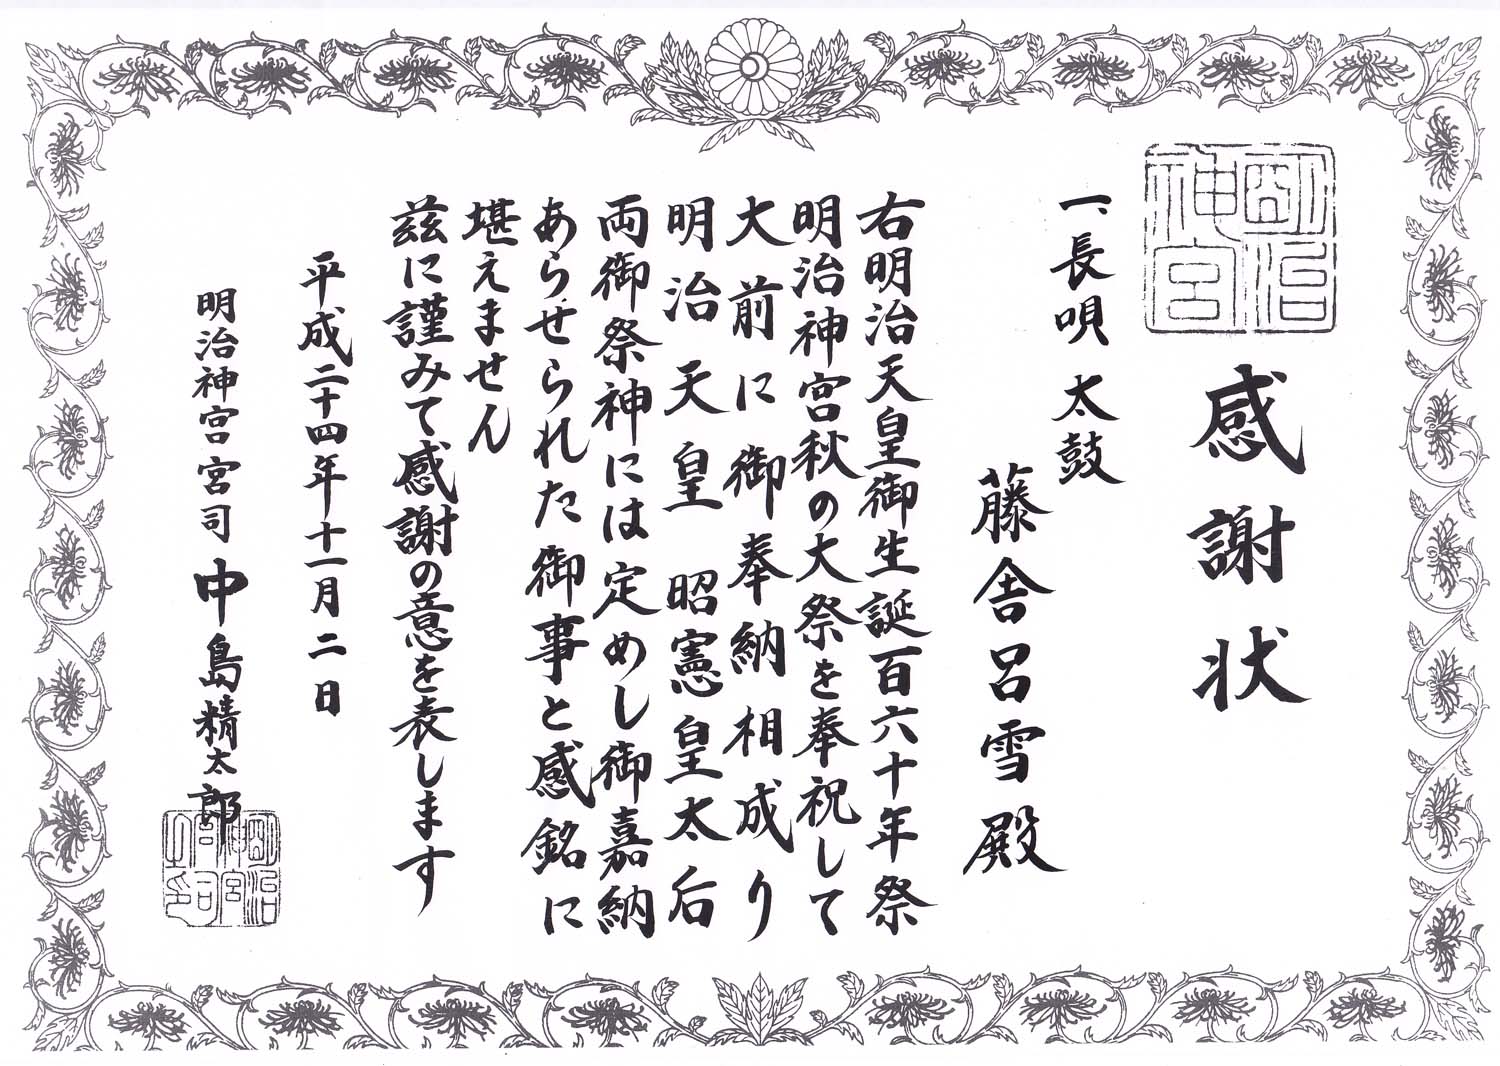 明治神宮
感謝状
一、長唄 太鼓
藤舎呂雪殿
右明治天皇御生誕百六十年祭
明治神宮秋の大祭を奉祝して
大前に御奉納相成り
明治天皇 昭憲皇太后
両御祭神には定めし御嘉納
あらせられた御事と感銘に
堪えません
茲に謹みて感謝の意を表します
平成二十四年十一月二日
明治神宮宮司 中島精太郎
明治神宮宮司之印